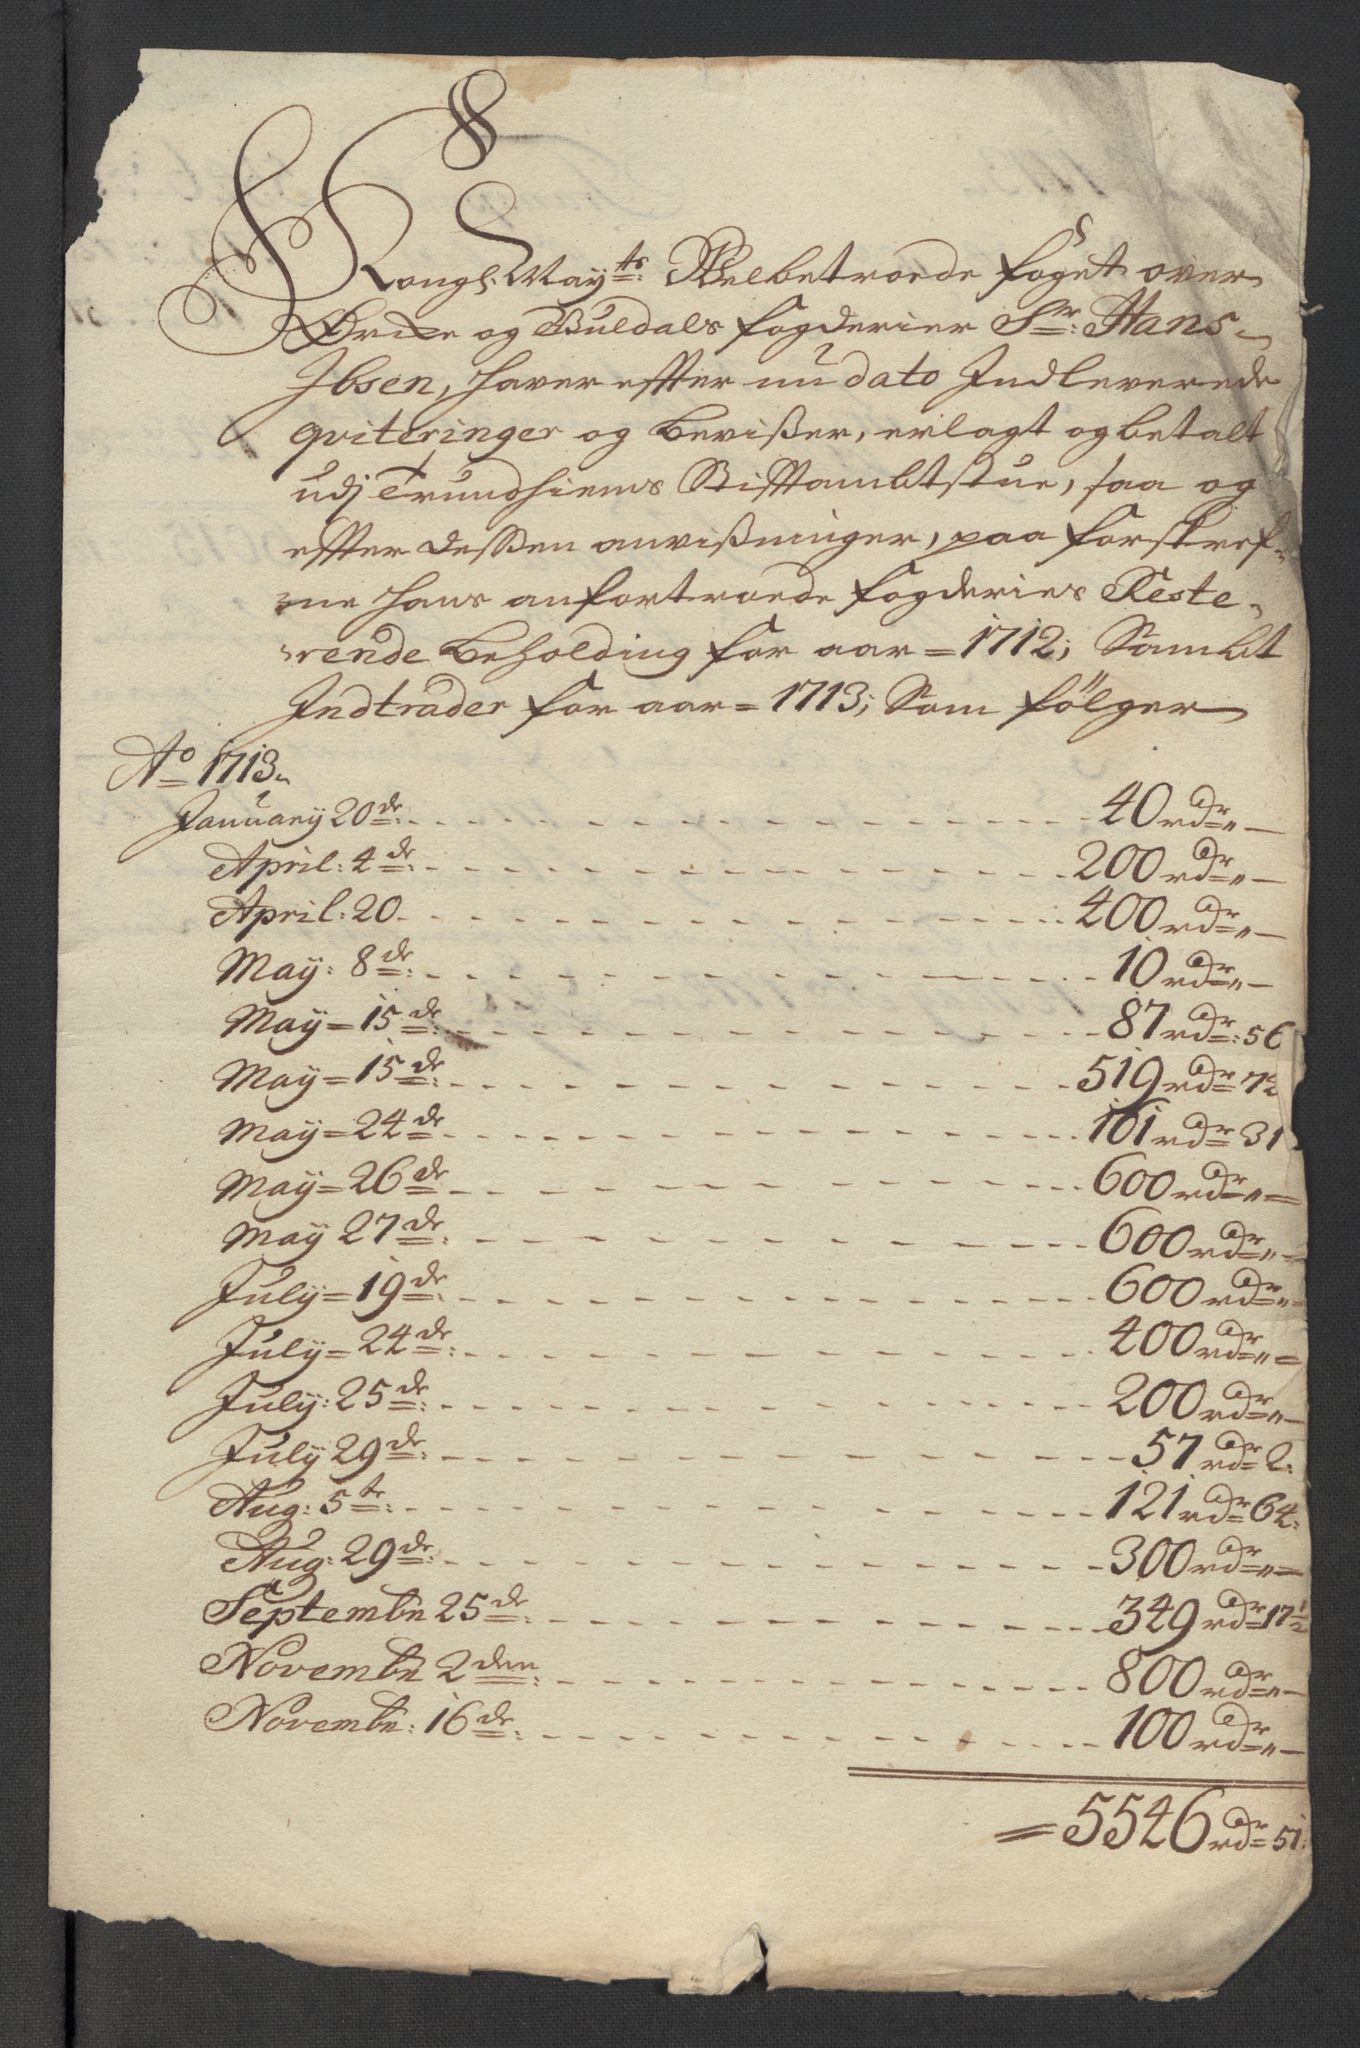 Kongl: May:ts Welbetroede foget over
Ørcke og Guldals fogderier Sr: Hans
Ibsen, haver effter nu dato Indleverede
qviteringer og bevißer, erlagt og betalt
udj Trundhiems Stifftambtstue, saa og
effter deßen anvißninger, paa forskref-
ne hans anfortroede fogderies Reste-
rende beholding for aar = 1712; Sambt
Indtrader for aar = 1713; Som fölger
Ao 1713
January 20de: 40 rdr "—
April: 4de: 200 rdr "—
April: 20 400 rdr "—
May: 8de: 10 rdr "—
May = 15de: 87 rdr: 56
May = 15de: 519 rdr 72
May = 24de 161 rdr 31
May = 26de 600 rdr "=
May 27de: 600 rdr "=
July = 19de: 600 rdr "=
July = 24de: 400 rdr "=
July: 25de: 200 rdr "—
July 29de: 57 rdr 2:
Aug: 5te: 121 rdr 64:
Aug: 29de: 300 rdr "=
Septembr 25de: 349 rdr 17½
Novembr 2den: 800 rdr "—
Novembr: 16de: 100 rdr "—
= 5546 rdr 51: